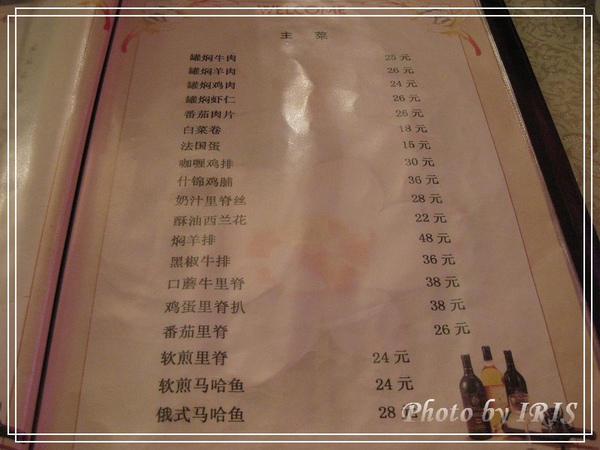 WELCOME
主 菜
罐焖牛肉 25 元
罐焖羊肉 26 元
罐焖鸡肉 24 元
罐焖虾仁 26 元
番茄肉片 26 元
白菜卷 18 元
法国蛋 15 元
咖喱鸡排 30 元
什锦鸡脯 36 元
奶汁里脊丝 28 元
酥油西兰花 22 元
焖羊排 48 元
黑椒牛排 36 元
口蘑牛里脊 38 元
鸡蛋里脊扒 38 元
番茄里脊 26 元
软煎里脊 24 元
软煎马哈鱼 24 元
俄式马哈鱼 28 元
Photo by IRIS